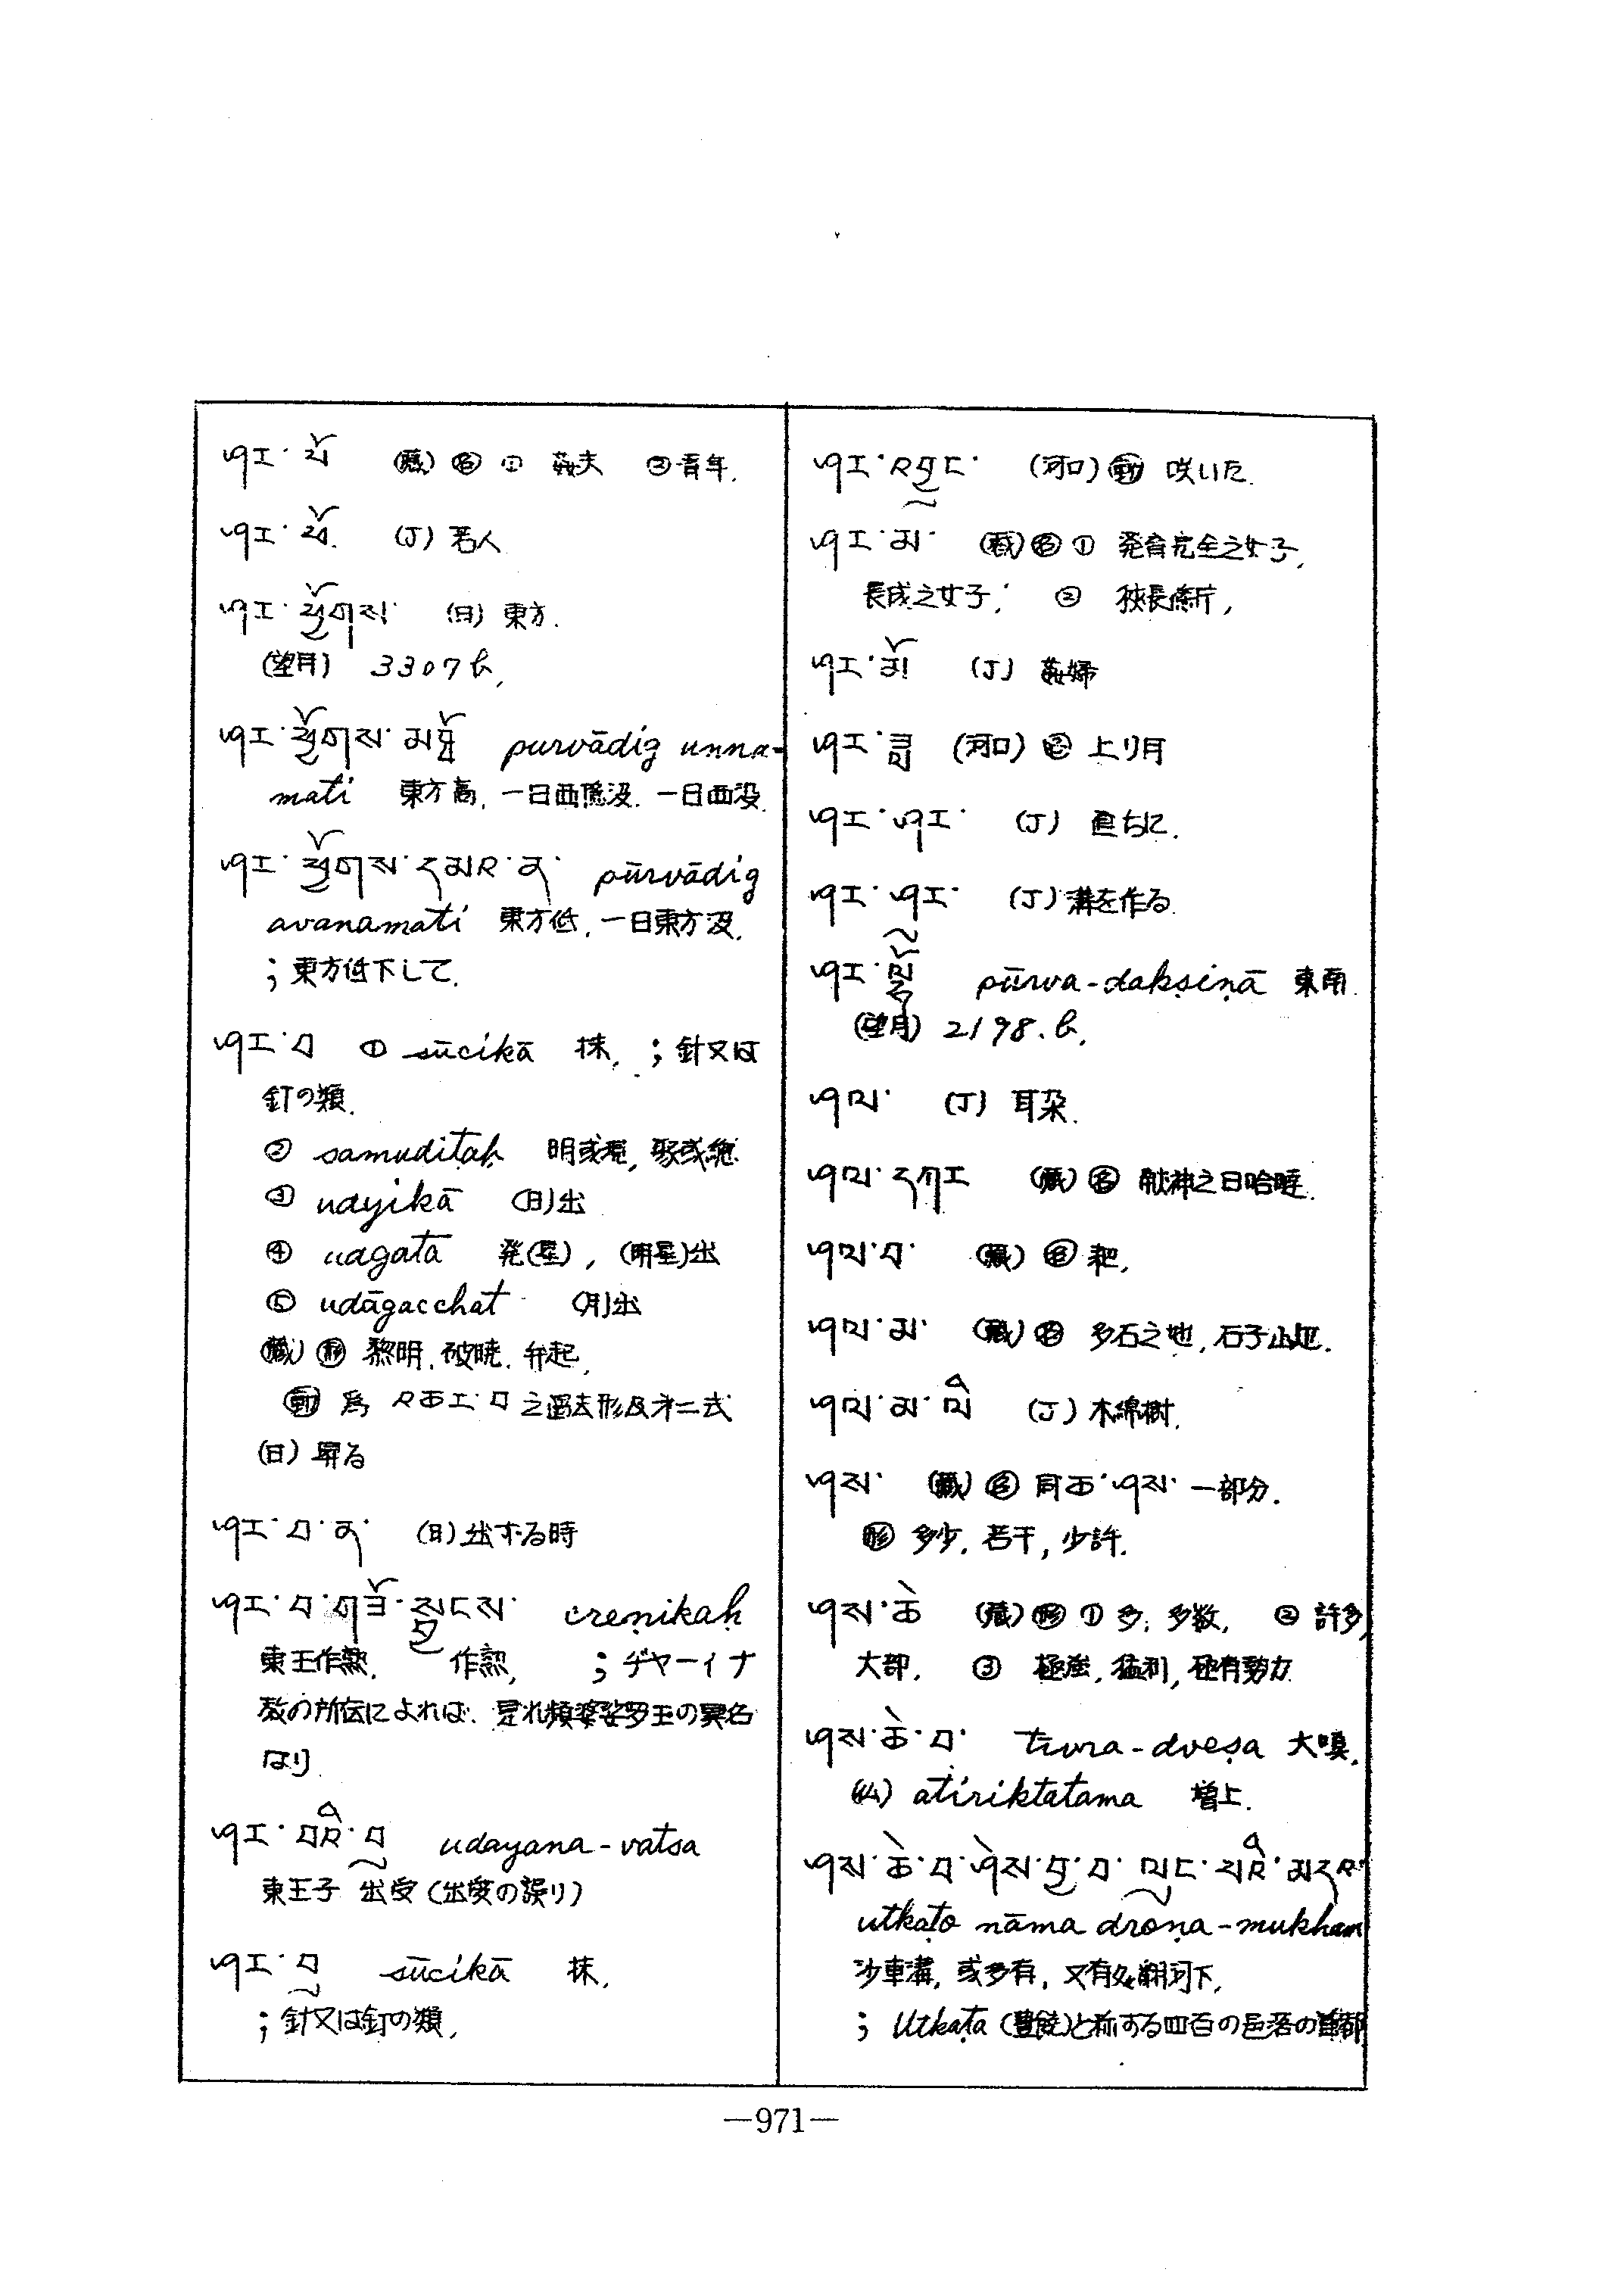 ཤར་པོ (蔵) 名 ① 姦夫 ② 青年.
ཤར་པོ. (J) 若人
ཤར་ཕྱོགས་ (日) 東方.
(望月) 3307 b,
ཤར་ཕྱོགས་མཐོ purvādig unna-
mati 東方高, 一日西没. 一日西没.
ཤར་ཕྱོགས་དམའ་ན་ pūrvādig
avanamati 東方低, 一日東方没.
; 東方低下して.
ཤར་བ ① sūcikā 抹, ; 針又は
釘の類.
② samuditaḥ 明或現,
③ udyikā (日)出
④ udgata 発(星), (明星)出
⑤ udāgacchat (月)出
(蔵) 形 黎明, 破暁, 弁起,
動 為 འཆར་བ 之過去形及才二式
(日) 昇る
ཤར་བ་ན་ (日) 出する時
ཤར་པ་གཟོ་སྦྱངས་ creṇikaḥ
東王作熟, 作熟, ; ヂヤーイナ
教の所伝によれば, 是れ頻婆娑罗王の異名
なり.
ཤར་བའི་བུ udayana-vatsa
東王子 出愛 (出愛の誤り)
ཤར་བུ sūcikā 抹,
; 針又は釘の類,
ཤར་འབྱུང་ (河口) 動 咲いた.
ཤར་མ་ (蔵) 名 ① 発育完全之女子,
長成之女子, ② 狭長條片,
ཤར་མོ (J) 姦婦
ཤར་ཟླ (河口) 名 上り月
ཤར་ཤར་ (J) 直ちに.
ཤར་ཤར་ (J) 溝を作る.
ཤར་ལྷོ pūrva-dakṣiṇā 東南.
(望月) 2198.b.
ཤལ་ (J) 耳朶.
ཤལ་དཀར (蔵) 名 献神之日哈達.
ཤལ་བ་ (蔵) 名 耙,
ཤལ་མ་ (蔵) 名 多石之地, 石子山地.
ཤལ་མ་ལི (J) 木綿樹.
ཤས་ (蔵) 名 同ཆ་ཤས་ 一部分.
形 多少, 若干, 少許.
ཤས་ཆེ (蔵) 形 ① 多, 多数, ② 許多,
大部, ③ 極強, 猛利, 極有勢力
ཤས་ཆེ་བ་ tivra-dveṣa 大嗔.
(仏) atiriktatama 増上.
ཤས་ཆེ་བ་ཤེས་བྱ་བ་ལུང་པའི་མདའ་
utkaṭo nāma droṇa-mukham
沙車溝, 或多有,
; Utkaṭa (豊饒)と称する四百の邑落の首都
—971—